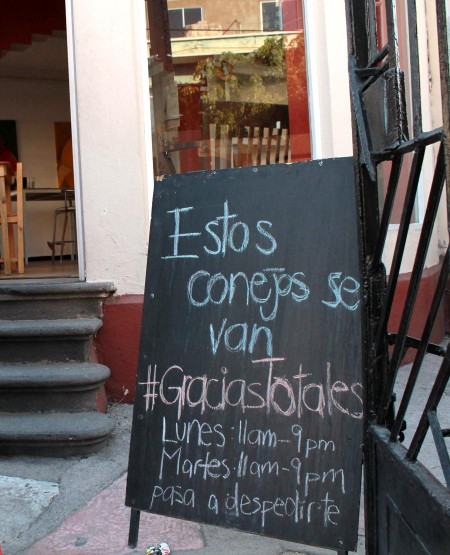 Estos
conejos se
van
#GraciasTotales
Lunes: 11am-9pm
Martes: 11am-9pm
pasa a despedirte